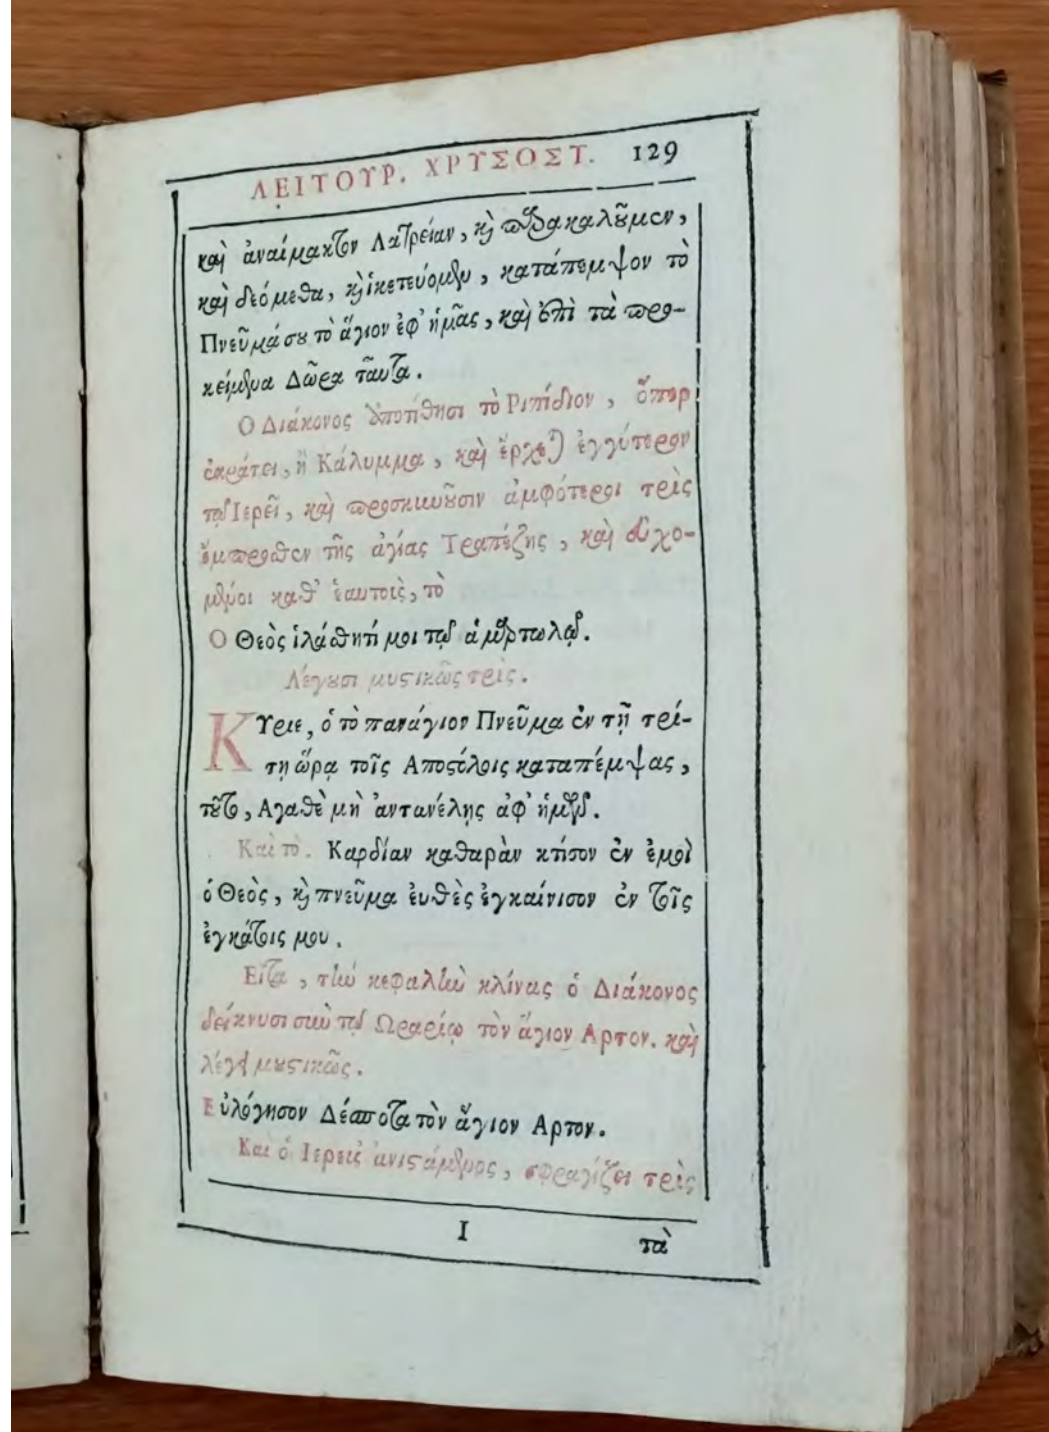 ΛΕΙΤΟΥΡ. ΧΡΥΣΟΣΤ. 129
καὶ ἀναίμακτον Λατρείαν, καὶ παρακαλοῦμεν,
καὶ δεόμεθα, καὶ ἱκετεύομεν, κατάπεμψον τὸ
Πνεῦμά σου τὸ ἅγιον ἐφ' ἡμᾶς, καὶ ἐπὶ τὰ προ-
κείμενα Δῶρα ταῦτα.
Ο Διάκονος ἀποτίθησι τὸ Ριπίδιον, ὅπερ
ἐκράτει, ἢ Κάλυμμα, καὶ ἔρχεται ἐγγύτερον
τῷ Ἱερεῖ, καὶ προσκυνοῦσιν ἀμφότεροι τρὶς
ἔμπροσθεν τῆς ἁγίας Τραπέζης, καὶ εὐχό-
μενοι καθ' ἑαυτοὶς, τὸ
Ο Θεὸς ἱλάσθητί μοι τῷ ἁμαρτωλῷ.
Λέγουσι μυστικῶς τρίς.
ΚΥριε, ὁ τὸ πανάγιον Πνεῦμα ἐν τῇ τρί-
τῃ ὥρᾳ τοῖς Αποστόλοις καταπέμψας,
τοῦτο, Αγαθὲ μὴ ἀντανέλῃς ἀφ' ἡμῶν.
Καὶ τὸ. Καρδίαν καθαρὰν κτίσον ἐν ἐμοὶ
ὁ Θεὸς, καὶ πνεῦμα ἐυθὲς ἐγκαίνισον ἐν τοῖς
ἐγκάτοις μου.
Εἶτα, τὴν κεφαλὴν κλίνας ὁ Διάκονος
δείκνυσι σὺν τῷ Ωραρίῳ τὸν ἅγιον Αρτον. καὶ
λέγει μυστικῶς.
Εὐλόγησον Δέσποτα τὸν ἅγιον Αρτον.
Καὶ ὁ Ιερεὺς ἀνιστάμενος, σφραγίζει τρὶς
Ι τὰ